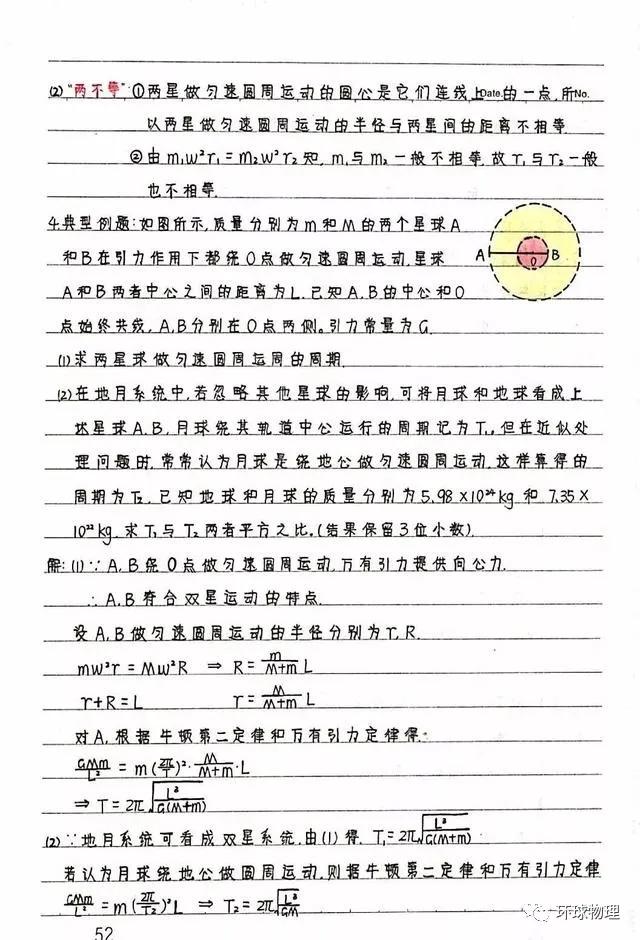 (2) "两不等": ①两星做匀速圆周运动的圆心是它们连线上Date.的一点,所No.
以两星做匀速圆周运动的半径与两星间的距离不相等.
②由m₁w²r₁=m₂w²r₂知, m₁与m₂一般不相等.故r₁与r₂一般
也不相等.
4.典型例题:如图所示,质量分别为m和M的两个星球A
和B在引力作用下都绕O点做匀速圆周运动,星球
A和B两者中心之间的距离为L.已知A,B的中心和O
点始终共线, A,B分别在O点两侧。引力常量为G.
A O B
(1)求两星球做匀速圆周运周的周期.
(2)在地月系统中,若忽略其他星球的影响,可将月球和地球看成上
述星球A.B,月球绕其轨道中心运行的周期记为T₁,但在近似处
理问题时,常常认为月球是绕地心做匀速圆周运动,这样算得的
周期为T₂.已知地球和月球的质量分别为5.98×10²⁴kg和7.35×
10²²kg.求T₁与T₂两者平方之比.(结果保留3位小数).
解:(1)∵A,B绕O点做匀速圆周运动,万有引力提供向心力.
∴A,B符合双星运动的特点.
设A,B做匀速圆周运动的半径分别为r,R.
mw²r=Mw²R ⇒ R=m/(M+m) L
r+R=L r=M/(M+m) L
对A,根据牛顿第二定律和万有引力定律得:
GMm/L²=m(2π/T)²·M/(M+m)·L
⇒T=2π√(L³/G(M+m))
(2)∵地月系统可看成双星系统,由(1)得. T₁=2π√(L³/G(M+m))
若认为月球绕地心做圆周运动,则据牛顿第二定律和万有引力定律
GMm/L²=m(2π/T₂)²L ⇒ T₂=2π√(L³/GM)
环球物理
52